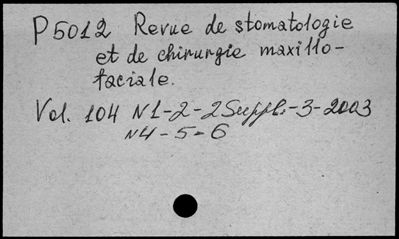 P5012 Revue de stomatologie
et de chirurgie maxillo-
faciale.
Vol. 104 N1-2-2Suppl.-3-2003
N4-5-6